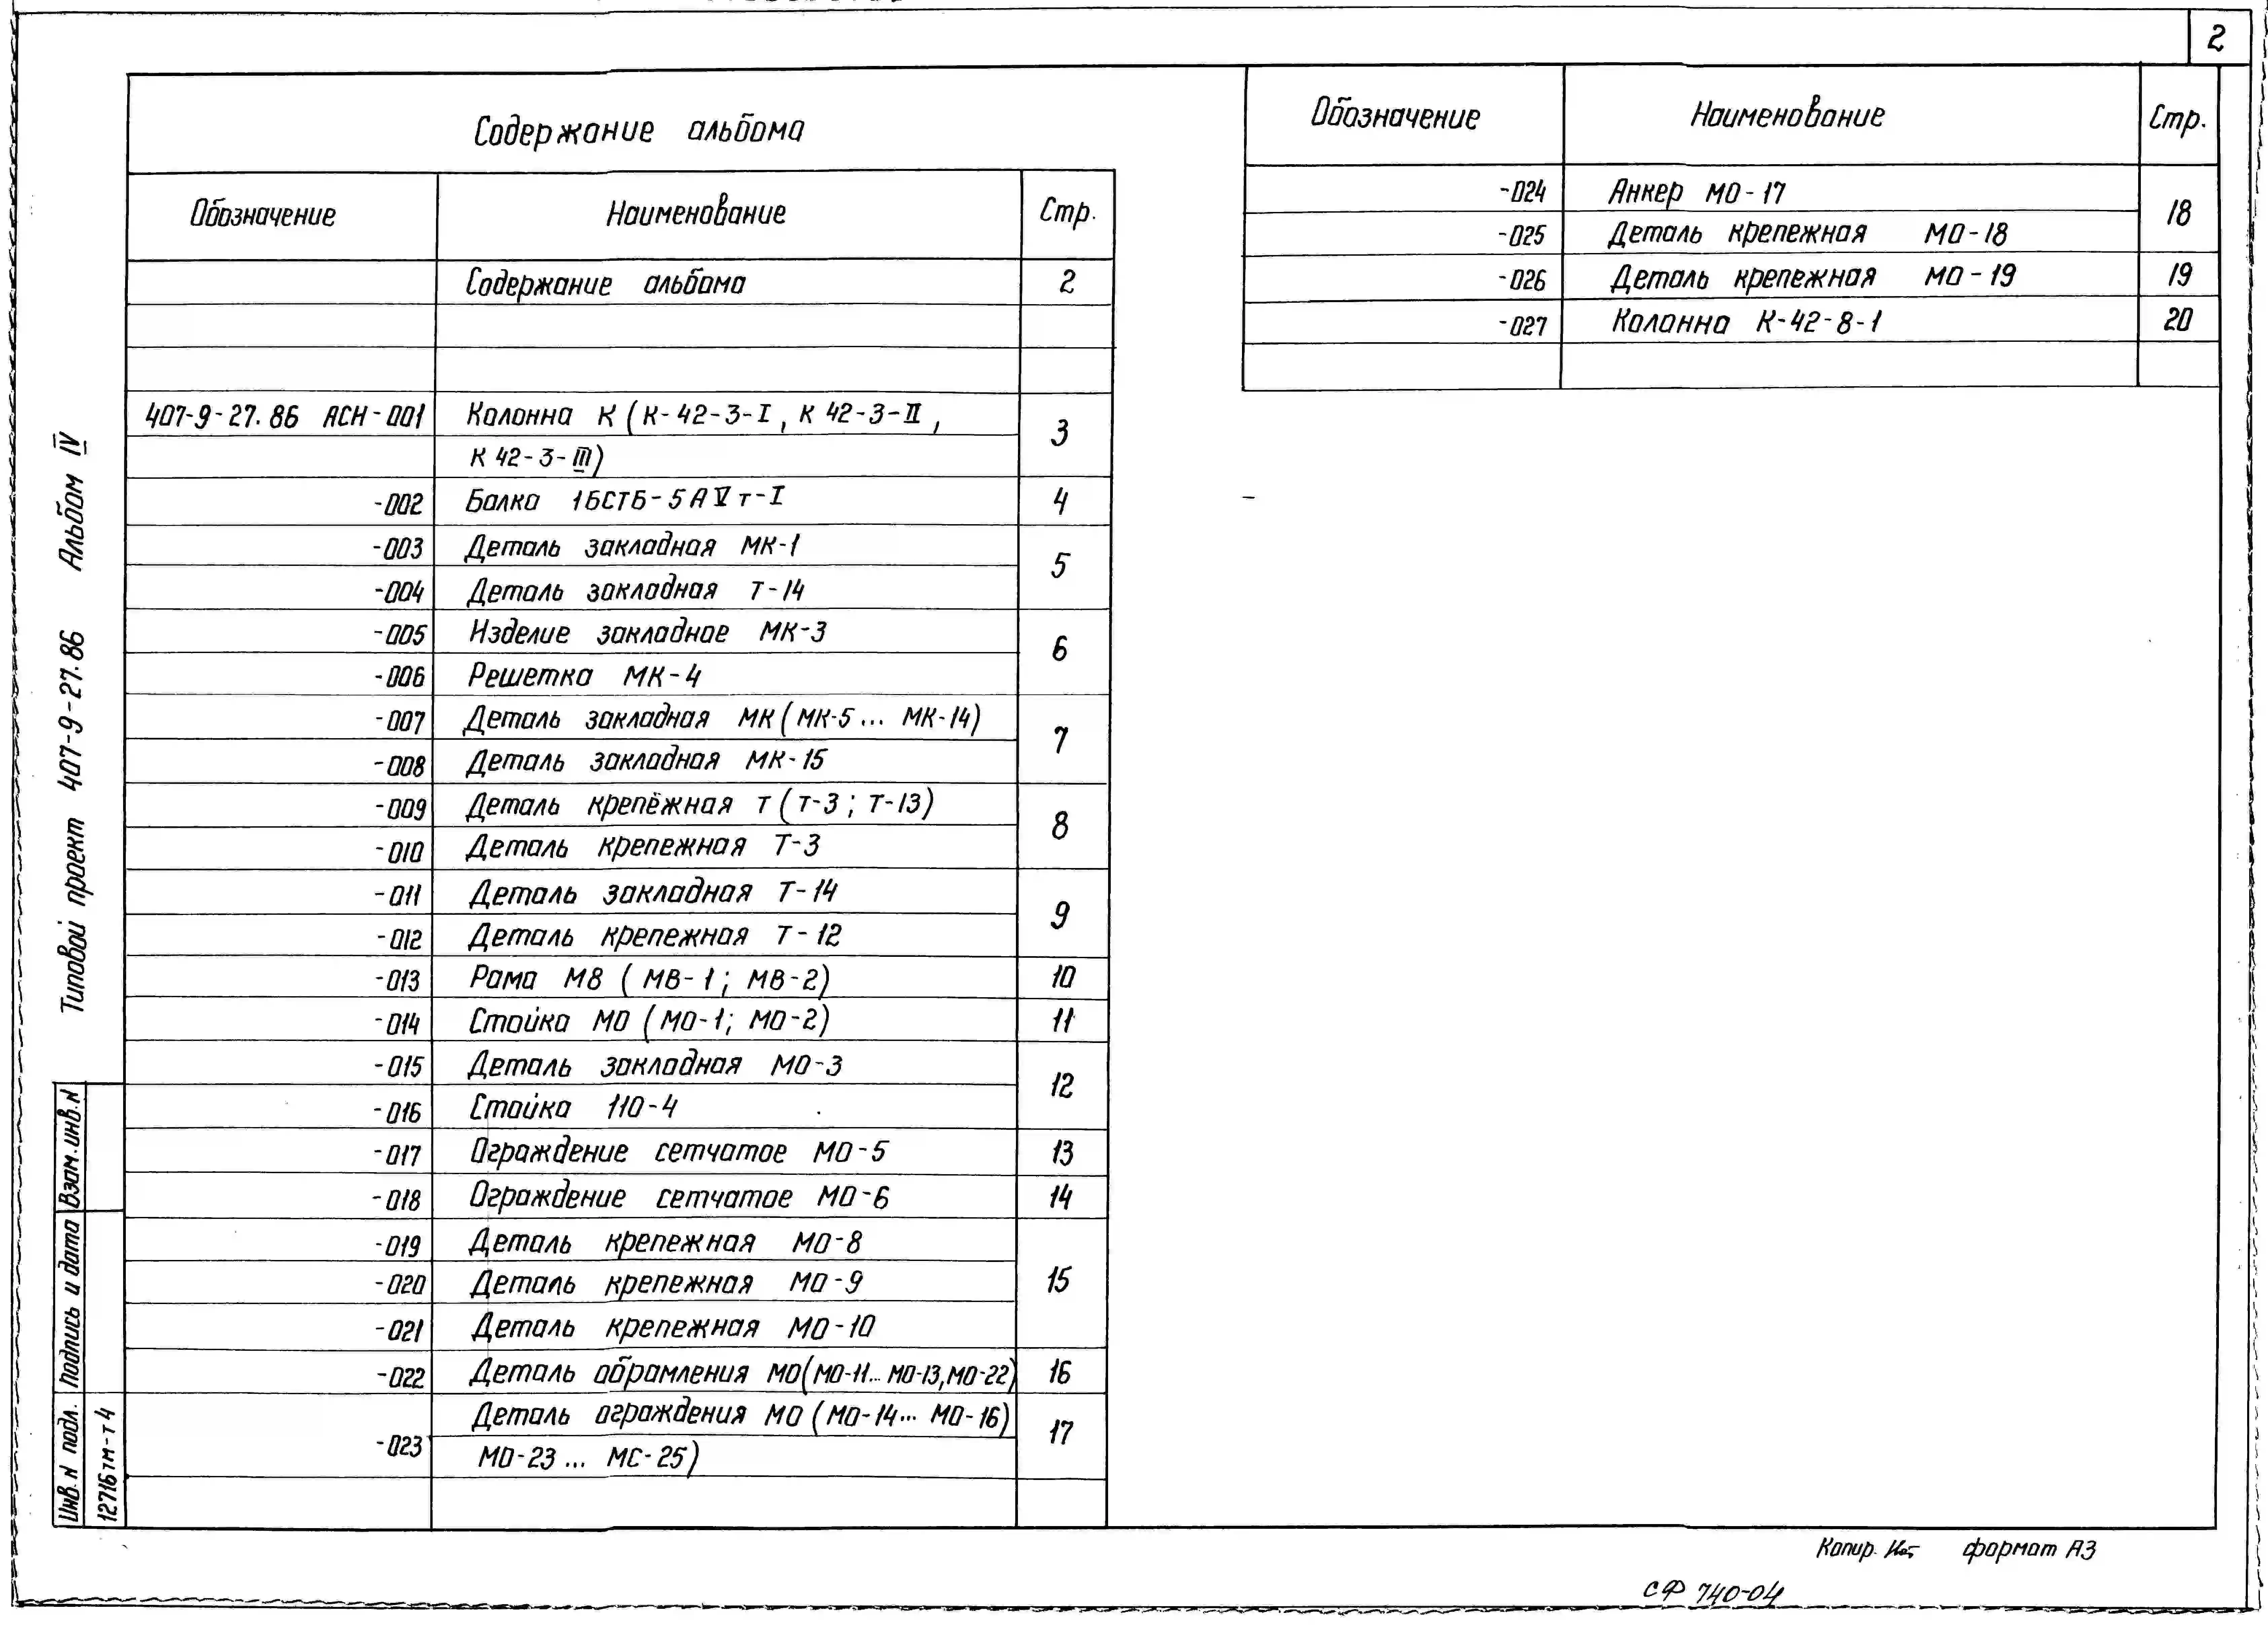 2
Содержание альбома
Обозначение Наименование Стр.
Содержание альбома 2
407-9-27.86 АСН-001 Колонна К (К-42-3-I, К 42-3-II,
К 42-3-III) 3
-002 Балка 1БСТ6-5АVт-I 4
-003 Деталь закладная МК-1 5
-004 Деталь закладная Т-14
-005 Изделие закладное МК-3 6
-006 Решетка МК-4
-007 Деталь закладная МК (МК-5... МК-14) 7
-008 Деталь закладная МК-15
-009 Деталь крепёжная Т (Т-3; Т-13) 8
-010 Деталь крепежная Т-3
-011 Деталь закладная Т-14 9
-012 Деталь крепежная Т-12
-013 Рама М8 (МВ-1; МВ-2) 10
-014 Стойка МО (МО-1; МО-2) 11
-015 Деталь закладная МО-3 12
-016 Стойка 110-4
-017 Ограждение сетчатое МО-5 13
-018 Ограждение сетчатое МО-6 14
-019 Деталь крепежная МО-8 15
-020 Деталь крепежная МО-9
-021 Деталь крепежная МО-10
-022 Деталь обрамления МО(МО-11... МО-13, МО-22) 16
-023 Деталь ограждения МО (МО-14... МО-16) 17
МО-23... МС-25)
Обозначение Наименование Стр.
-024 Анкер МО-17 18
-025 Деталь крепежная МО-18
-026 Деталь крепежная МО-19 19
-027 Колонна К-42-8-1 20
Типовой проект 407-9-27.86 Альбом IV
Взам.инв.N
Подпись и дата
Инв.N подл.
12716тм-т4
Копир. формат А3
СФ 740-04